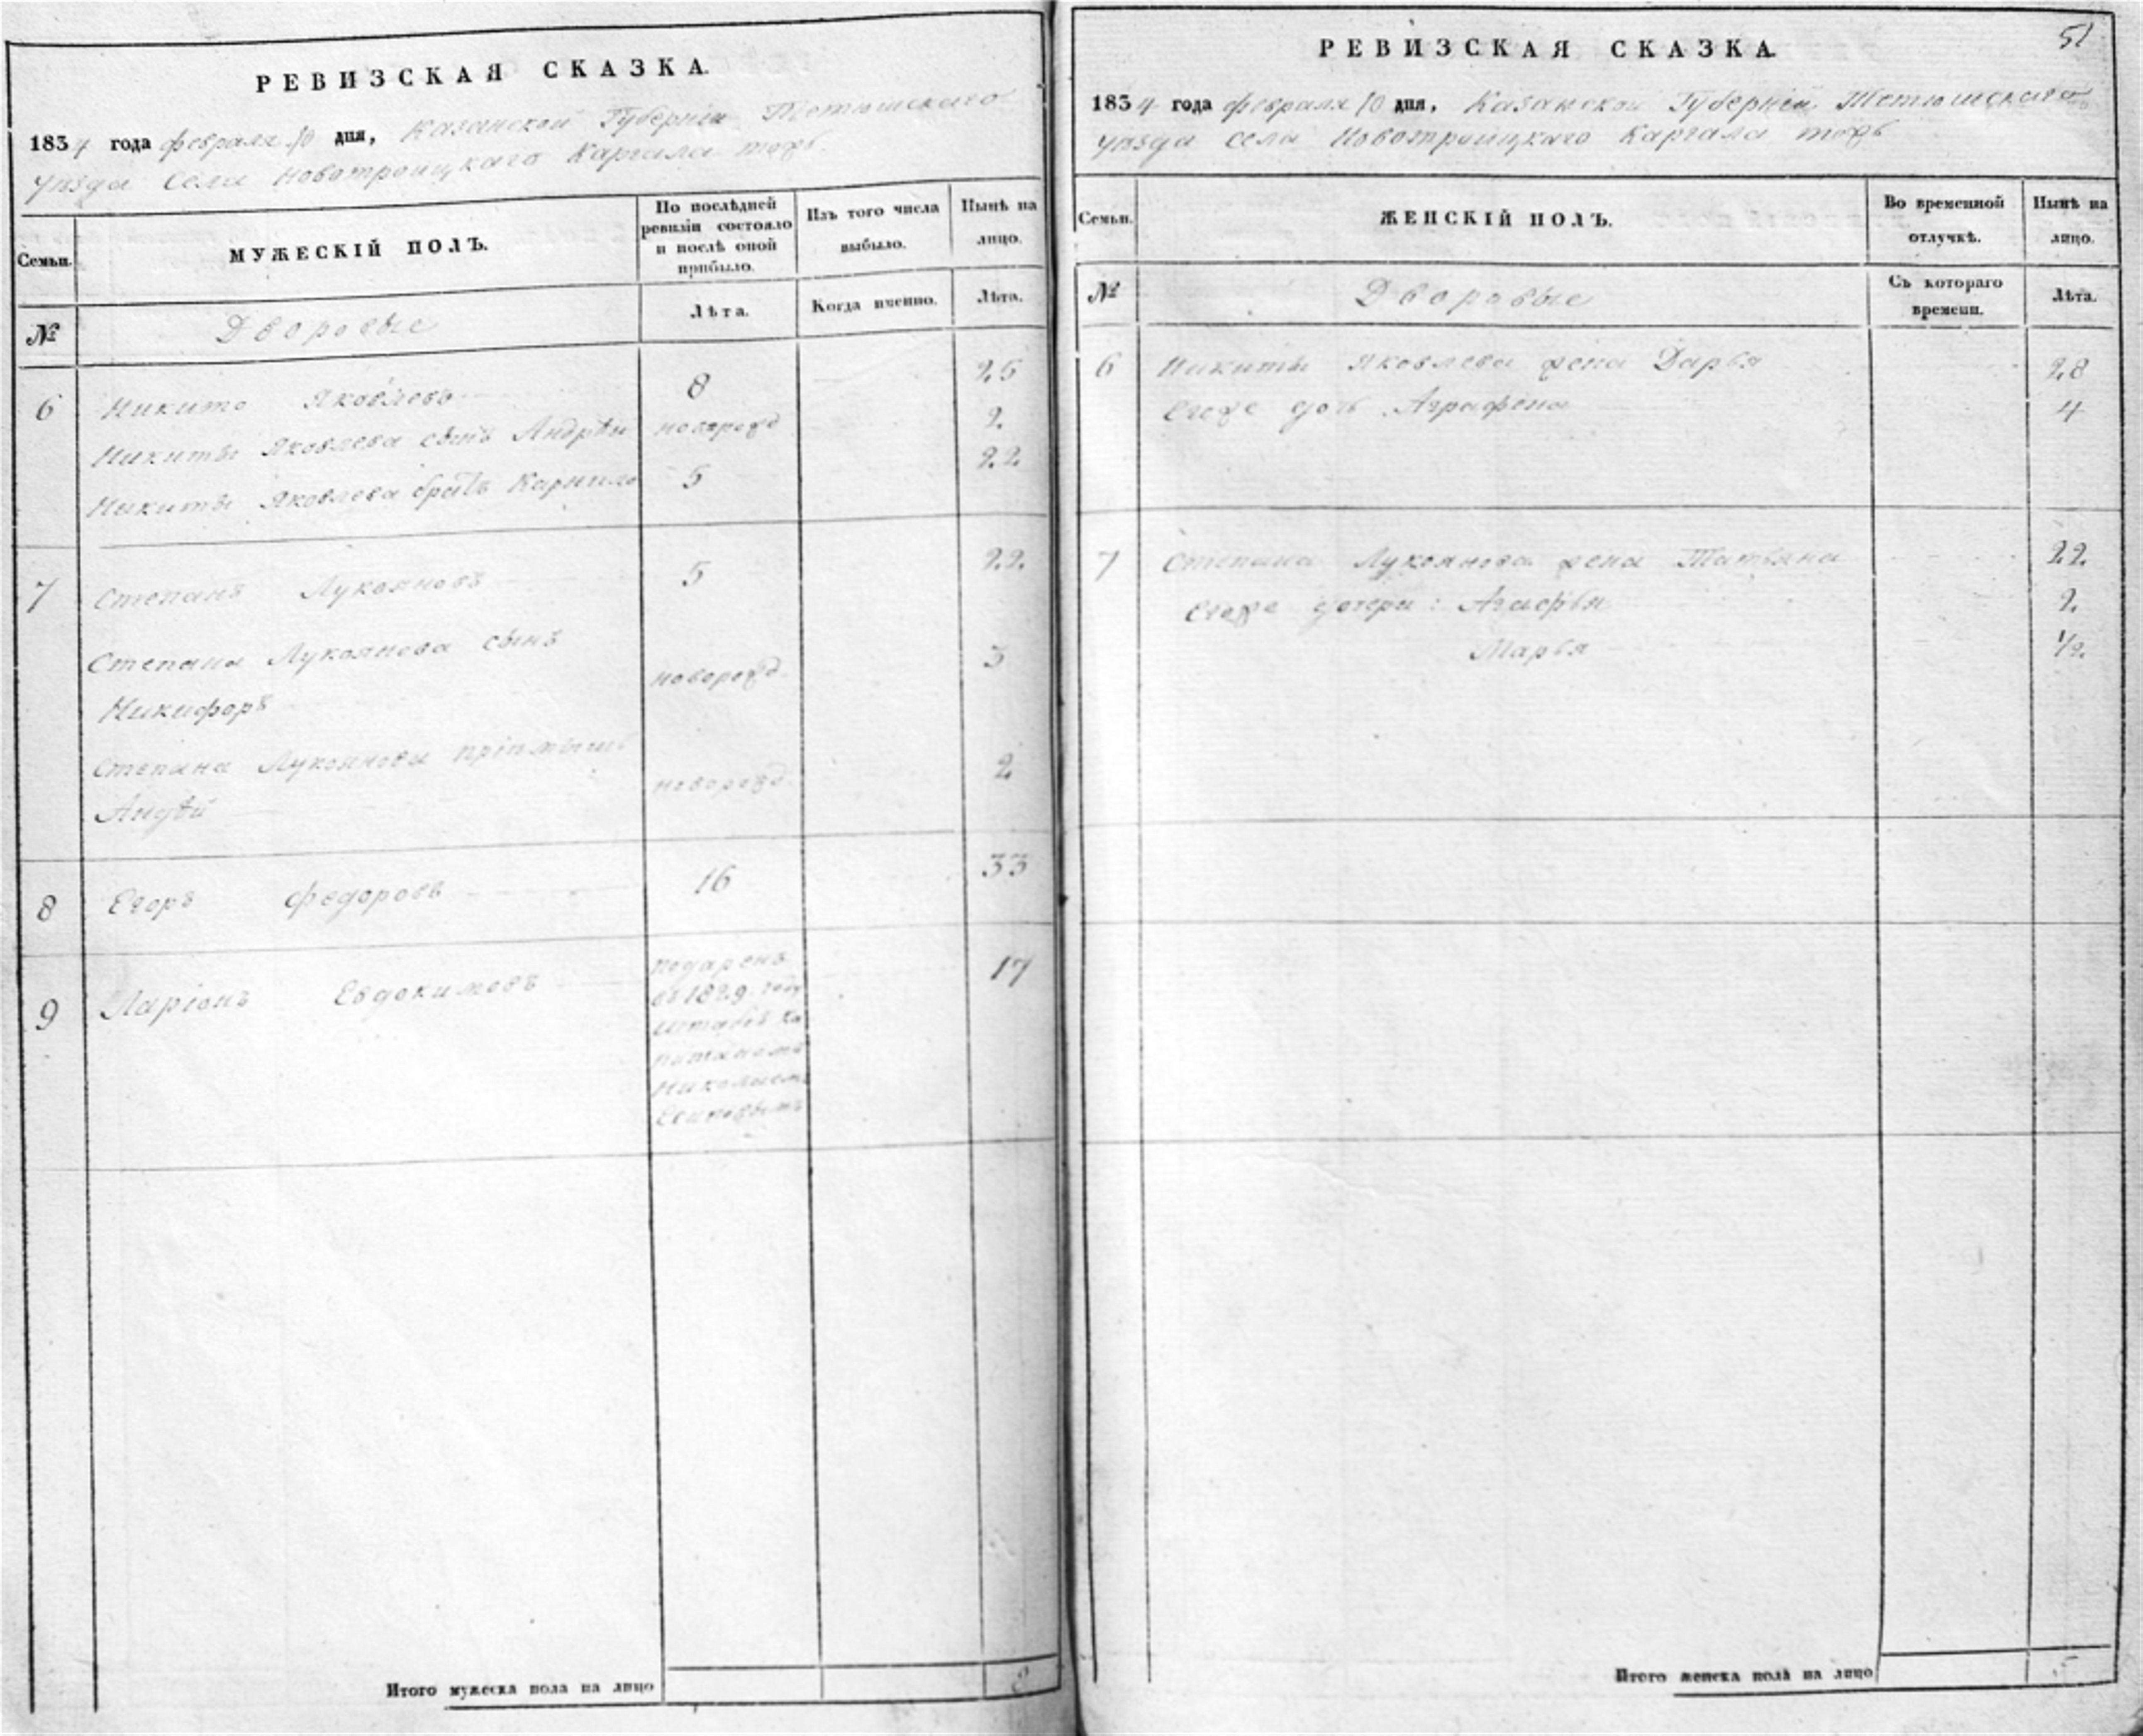 РЕВИЗСКАЯ СКАЗКА.
1834 года февраля 10 дня, Казанской Губерніи Тетюшскаго
уѣзда села Новотроицкаго Каргала тожъ.
Семьи.
МУЖЕСКІЙ ПОЛЪ.
По послѣдней
ревизіи состояло
и послѣ оной
прибыло.
Изъ того числа
выбыло.
Нынѣ на
лицо.
№
Дворовые
Лѣта.
Когда именно.
Лѣта.
6 Никита Яковлевъ 8 25
Никиты Яковлева сынъ Андрѣй новорожд 2
Никиты Яковлева братъ Карнило 5 22
7 Степанъ Лукояновъ 5 22
Степана Лукоянова сынъ
Никифоръ новорожд. 3
Степана Лукоянова пріемышъ
новорожд. 2
8 Егоръ Федоровъ 16 33
9 Ларіонъ Евдокимовъ подаренъ 17
въ 1829 году
штабсъ ка
питаномъ
Николаемъ
РЕВИЗСКАЯ СКАЗКА.
51
1834 года февраля 10 дня, Казанской Губерніи Тетюшскаго
уѣзда села Новотроицкаго Каргала тожъ
Семьи.
ЖЕНСКІЙ ПОЛЪ.
Во временной
отлучкѣ.
Нынѣ на
лицо.
№
Дворовые
Съ котораго
времени.
Лѣта.
6 Никиты Яковлева жена Дарья 28
Егоже дочь Аграфена 4
7 Степана Лукоянова жена Татьяна 22
Егоже дочери: Агафья 2
Марья 1/2
Итого мужеска пола на лицо 8
Итого женска пола на лицо 5